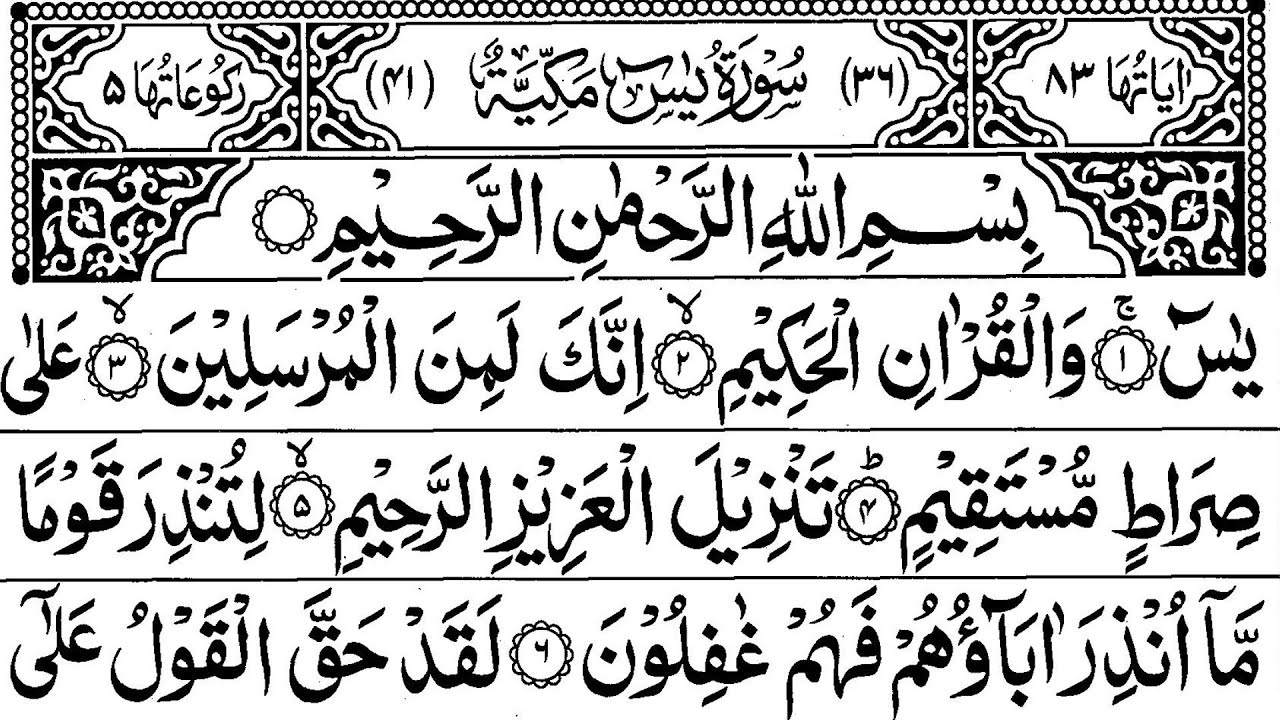 اٰيَاتُهَا ٨٣ (٣٦) سُوۡرَةُ يٰسٓ مَكِّيَّةٌ (٤١) رُكُوۡعَاتُهَا ۵
بِسۡمِ اللّٰهِ الرَّحۡمٰنِ الرَّحِيۡمِ
يٰسٓ ۚ‏﴿۱﴾ وَالۡقُرۡاٰنِ الۡحَكِيۡمِ ۙ‏﴿۲﴾ اِنَّكَ لَمِنَ الۡمُرۡسَلِيۡنَ ۙ‏﴿۳﴾ عَلٰى
صِرَاطٍ مُّسۡتَقِيۡمٍ ؕ‏﴿۴﴾ تَنۡزِيۡلَ الۡعَزِيۡزِ الرَّحِيۡمِ ۙ‏﴿۵﴾ لِتُنۡذِرَ قَوۡمًا
مَّاۤ اُنۡذِرَ اٰبَآؤُهُمۡ فَهُمۡ غٰفِلُوۡنَ‏﴿۶﴾ لَقَدۡ حَقَّ الۡقَوۡلُ عَلٰٓى